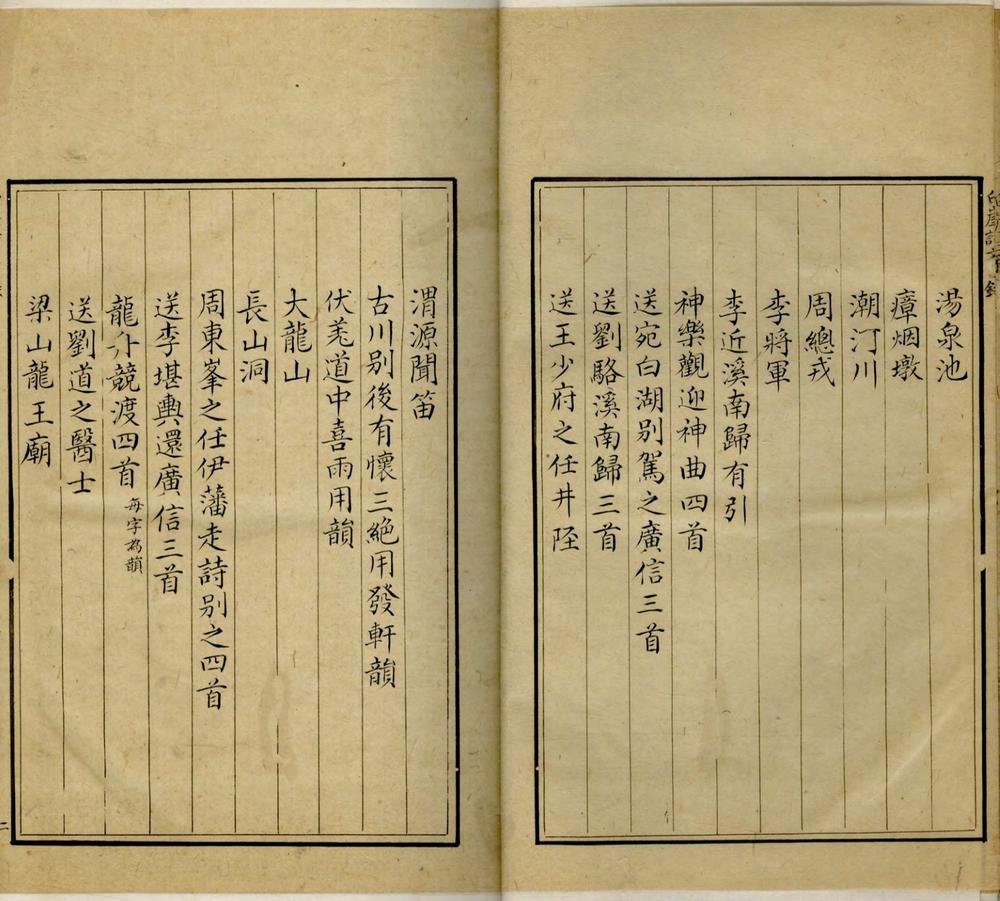 湯泉池
瘴烟墩
潮汀川
周總戎
李將軍
李近溪南歸有引
神樂觀迎神曲四首
送宛白湖别駕之廣信三首
送劉駱溪南歸三首
送王少府之任井陘
渭源聞笛
古川别後有懷三絶用發軒韻
伏羌道中喜雨用韻
大龍山
長山洞
周東峯之任伊藩走詩别之四首
送李堪輿還廣信三首
龍舟競渡四首 每字為韻
送劉道之醫士
梁山龍王廟
二